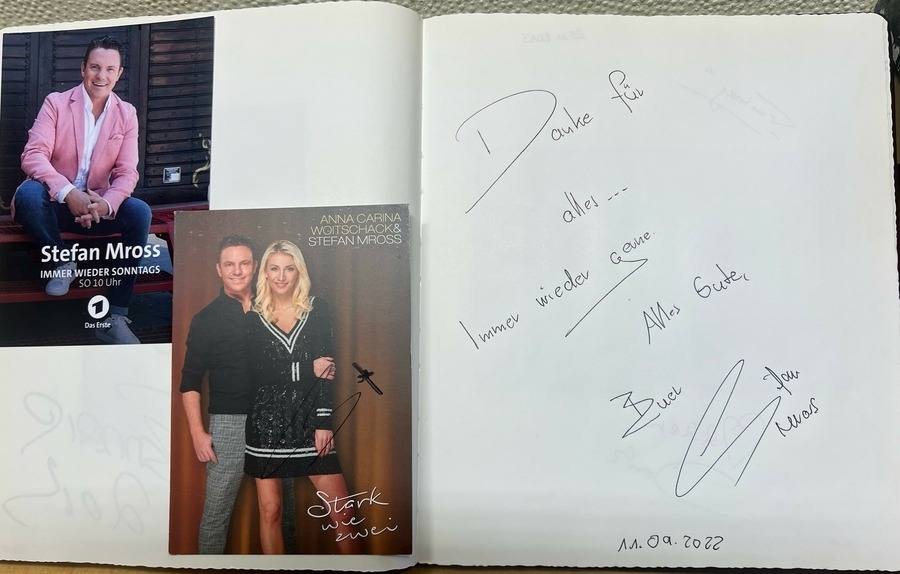 Stefan Mross
IMMER WIEDER SONNTAGS
SO 10 Uhr
1
Das Erste
ANNA CARINA
WOITSCHACK &
STEFAN MROSS
Stark
wie
zwei
Danke für
alles ---
Immer wieder gerne.
Alles Gute,
Euer
Stefan
Mross
11.09.2022